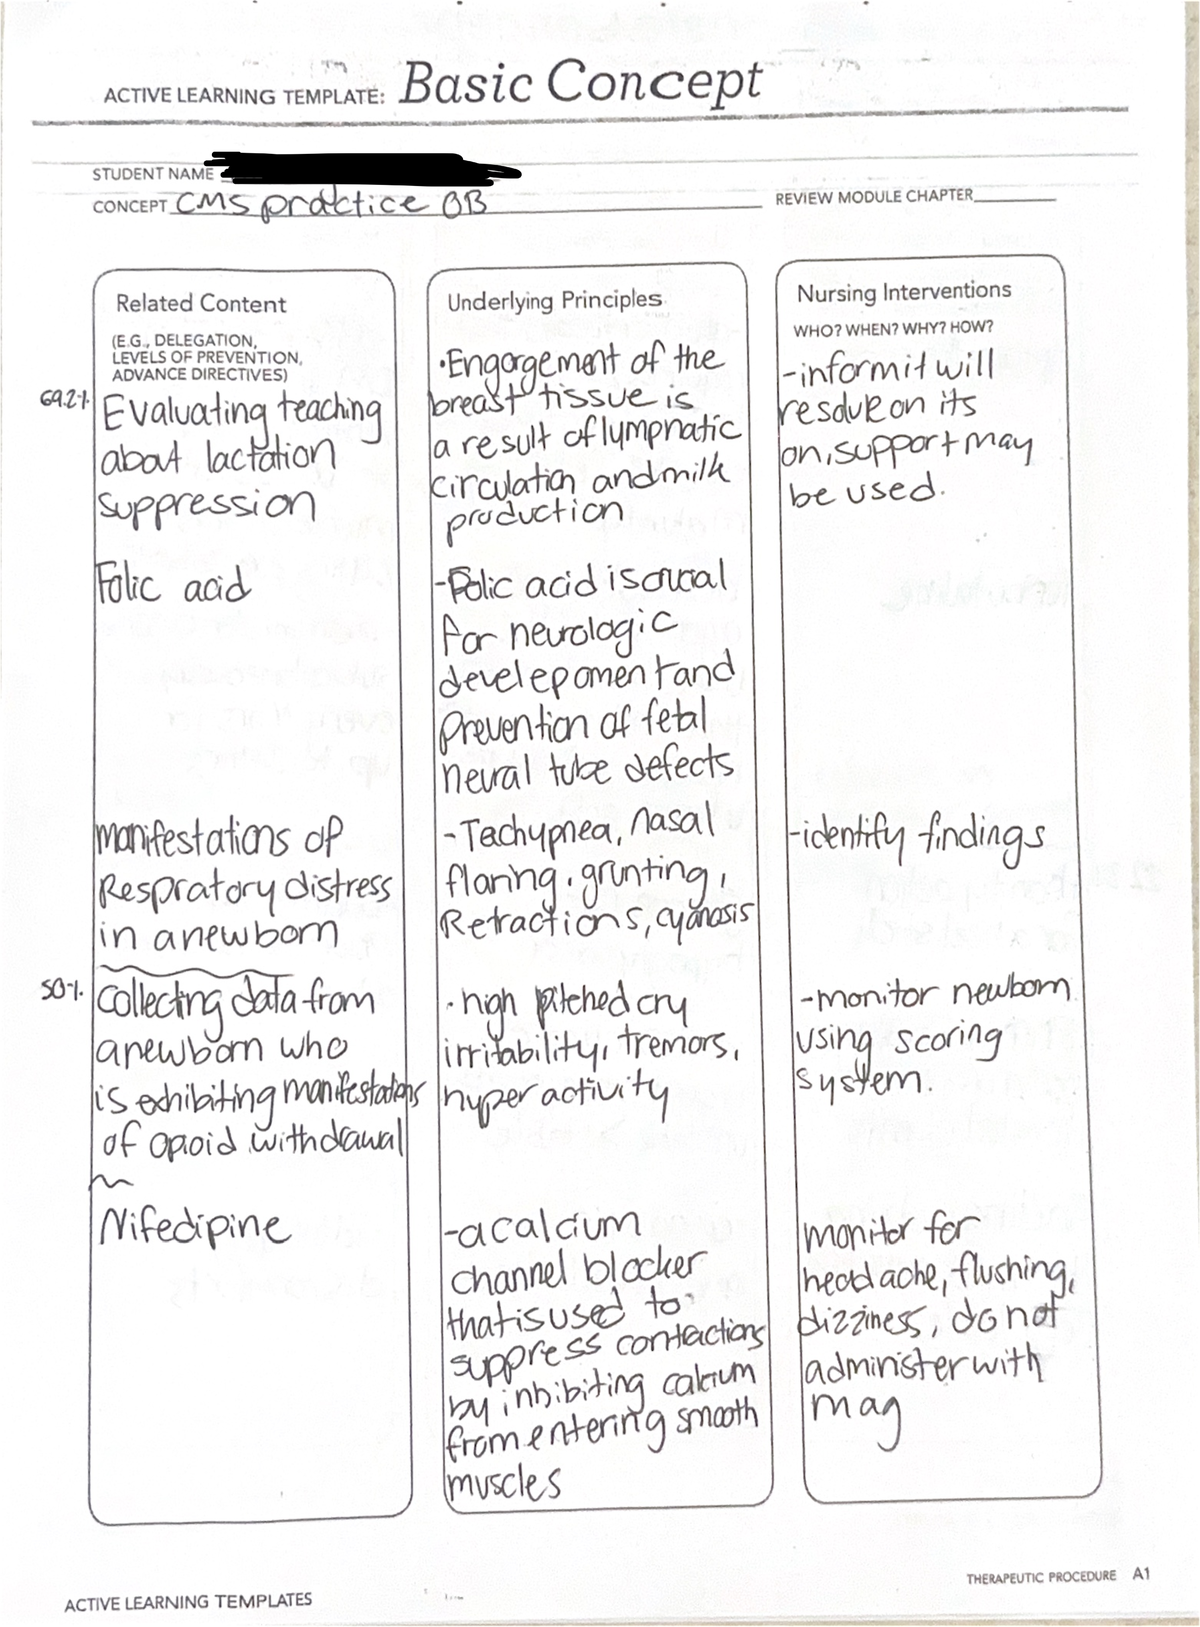 ACTIVE LEARNING TEMPLATE: Basic Concept
STUDENT NAME
CONCEPT CMS practice OB
REVIEW MODULE CHAPTER
Related Content
(E.G., DELEGATION,
LEVELS OF PREVENTION,
ADVANCE DIRECTIVES)
69.2%
Evaluating teaching
about lactation
suppression
Folic acid
manifestations of
Respratory distress
in a newborn
50%
Collecting data from
a newborn who
is exhibiting manifestations
of opioid withdrawal
Nifedipine
Underlying Principles
•Engorgement of the
breast tissue is
a result of lympnatic
circulation and milk
production
-Folic acid is crucial
for neurologic
develepoment and
prevention of fetal
neural tube defects
-Tachypnea, nasal
flaring, grunting,
Retractions, cyanosis
• high pitched cry
irritability, tremors,
hyper activity
-a calcium
channel blocker
that is used to
suppress contractions
by inhibiting calcium
from entering smooth
muscles
Nursing Interventions
WHO? WHEN? WHY? HOW?
-inform it will
resolve on its
on, support may
be used.
-identify findings
-monitor newborn
using scoring
system.
monitor for
headache, flushing,
dizziness, do not
administer with
mag
THERAPEUTIC PROCEDURE A1
ACTIVE LEARNING TEMPLATES